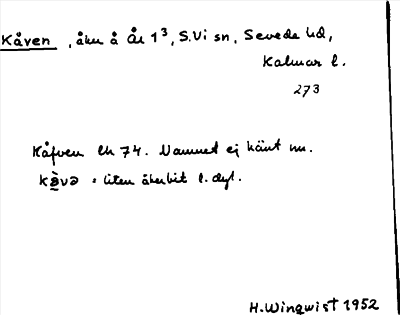 Kåven, åker å År 1³, S.Vi sn, Sevede hd,
Kalmar l.
273
Kåfven Lh 74. Namnet ej känt nu.
kåvə = liten åkerbit l. dyl.
H. Winqwist 1952